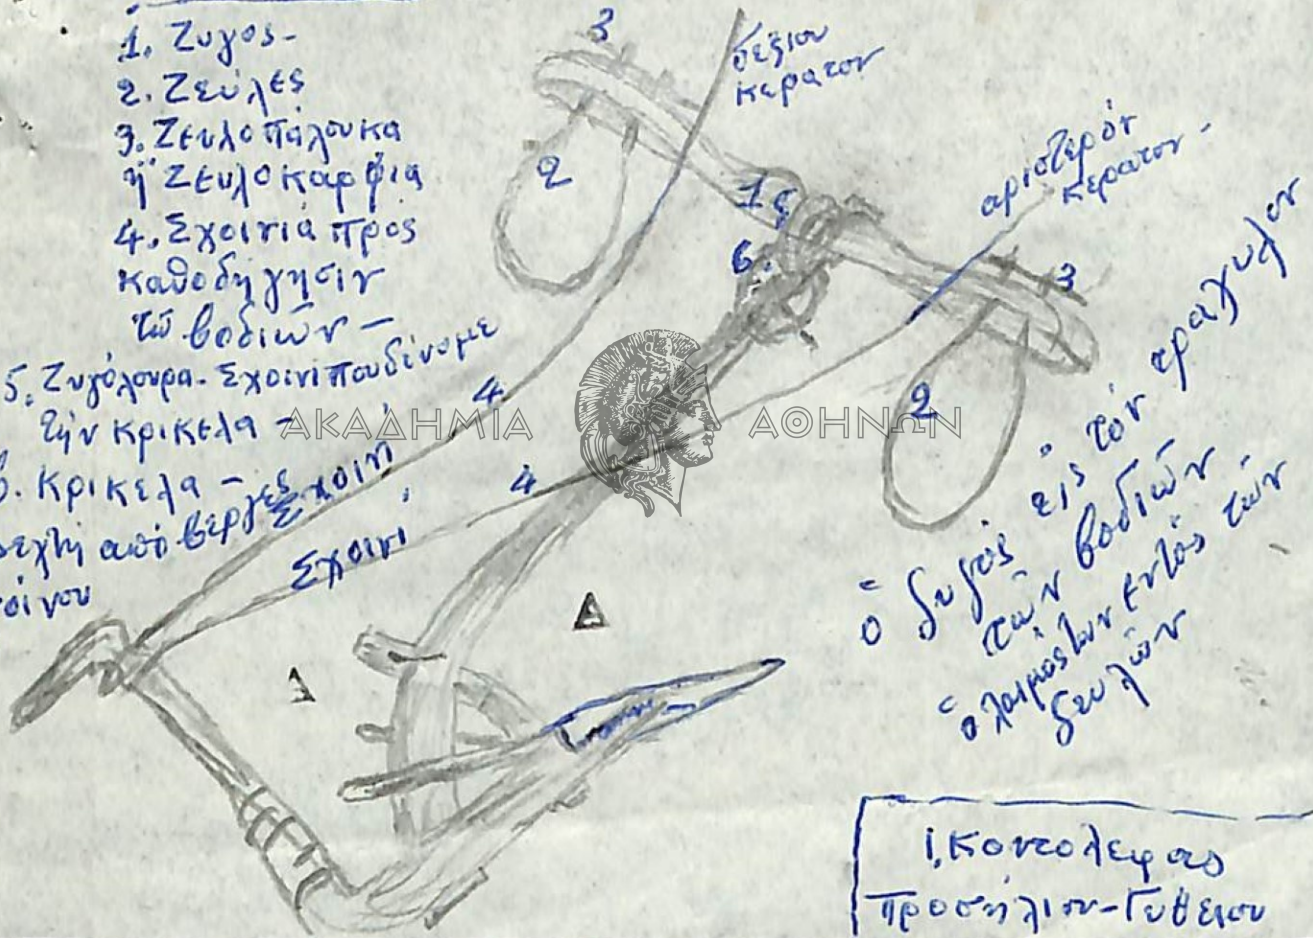 1. Ζυγος-
2. Ζεύλες
3. Ζευλοπάλουκα
ή Ζευλοκαρφια
4. Σχοινιά προς
καθοδήγησιν
τῶ βοδιῶν -
5. Ζυγόλουρα - Σχοινι που δένομε
τήν κρικελα -
6. κρικελα -
από βέργες
3
δεξιον
κερατον
2
1
5
6.
αριστερόν
κερατον -
3
2
4
Σχοινί
4
Σχοινί
ΑΚΑΔΗΜΙΑ ΑΘΗΝΩΝ
Δ
ὁ ζυγός εἰς τόν τραχυλον
τῶν βοδιῶν
ὁ λαιμός των εντός τῶν
ζευλῶν
Ι. Κοντολεφας
Προσήλιον - Γυθειου